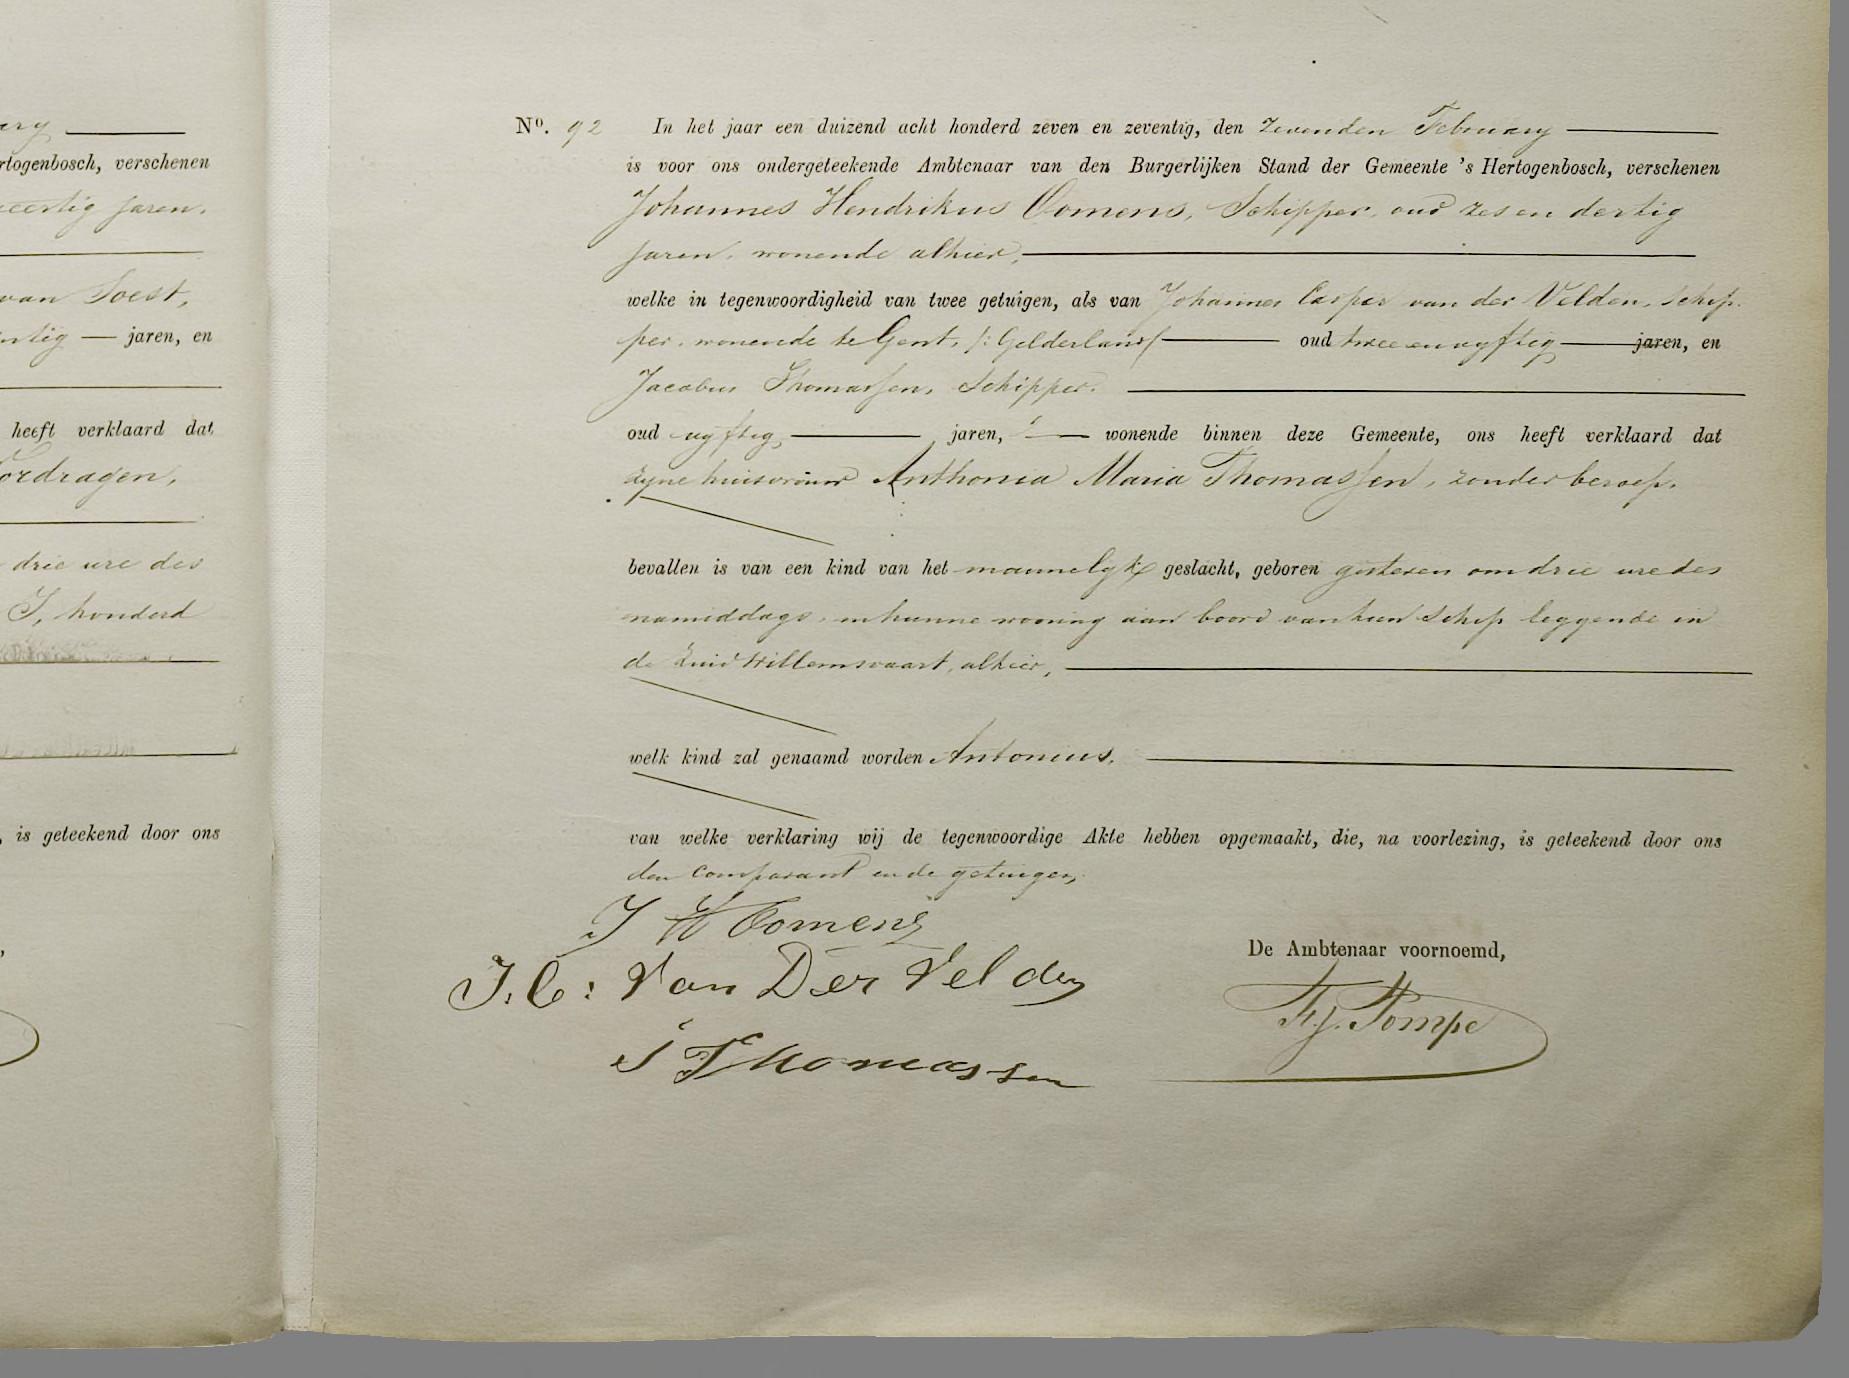 ary
rtogenbosch, verschenen
veertig jaren.
van Soest,
ntig — jaren, en
heeft verklaard dat
ordragen,
drie ure des
J, honderd
, is geteekend door ons
Nº. 92 In het jaar een duizend acht honderd zeven en zeventig, den zevenden February
is voor ons ondergeteekende Ambtenaar van den Burgerlijken Stand der Gemeente 's Hertogenbosch, verschenen
Johannes Hendrikus Oomens, Schipper, oud zes en dertig
jaren, wonende alhier,
welke in tegenwoordigheid van twee getuigen, als van Johannes Casper van der Velden, schip-
per, wonende te Gent, /: Gelderland/ oud twee en vyftig jaren, en
Jacobus Thomassen, Schipper.
oud vyftig, jaren, wonende binnen deze Gemeente, ons heeft verklaard dat
zyne huisvrouw Anthonia Maria Thomassen, zonder beroep.
bevallen is van een kind van het mannelyk geslacht, geboren gisteren om drie ure des
namiddags, in hunne wooning aan boord van hun schip leggende in
de Zuid Willemsvaart, alhier,
welk kind zal genaamd worden Antonius.
van welke verklaring wij de tegenwoordige Akte hebben opgemaakt, die, na voorlezing, is geteekend door ons
den comparant en de getuigen.
J H Oomens
J. C: Van Der Velden
J Thomassen
De Ambtenaar voornoemd,
F.J. Pompe